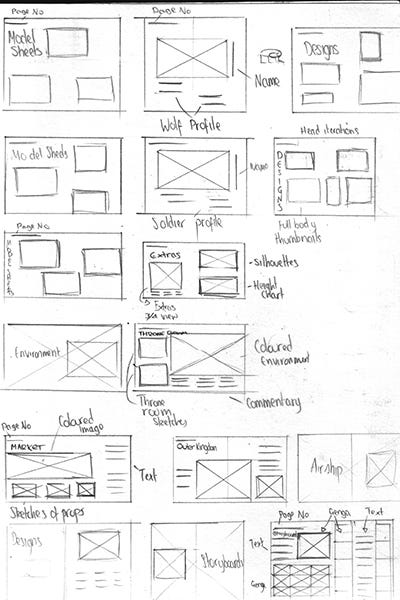 Page No
Model
Sheets
Page No
Name
Wolf Profile
Designs
Model Sheets
Name
Soldier profile
Head iterations
DESIGNS
Full body
thumbnails
Page No
MODEL SHEETS
Extras
Extras
3/4 view
Silhouettes
Height
Chart
Environment
THRONE ROOM
Throne
room
Sketches
Coloured
Environment
Commentary
Page No
Coloured
Image
MARKET
Text
Sketches of props
Outer Kingdom
Airship
Designs
Storyboards
Page No
Genga
Text
Text
Storyboard
Genga